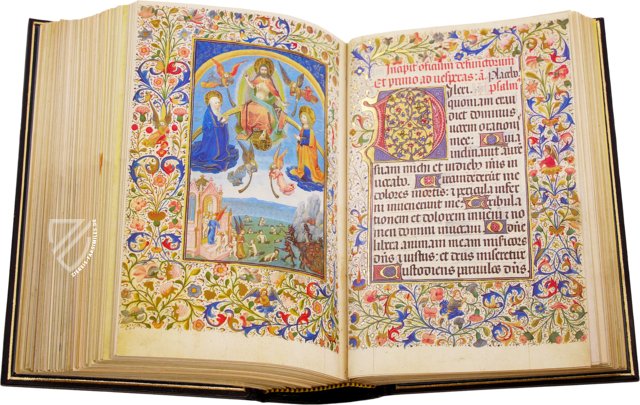 Incipit officium defunctorum
et primo ad vesperas: ā Placebo.
psalm
Dilexi
quoniam exau
diet dominus
vocem orationis
mee: Quia
inclinavit aurē
suam michi et in diebus meis in
vocabo Circumdederūt me
dolores mortis: et pericula infer
ni invenerunt me Tribula
tionem et dolorem inveni: et no
men domini invocavi O dn̄e
libera animam meam misericors
dn̄s et iustus: et deus n̄r miseretur
Custodiens parvulos dn̄s
ZIEREIS FAKSIMILES.DE